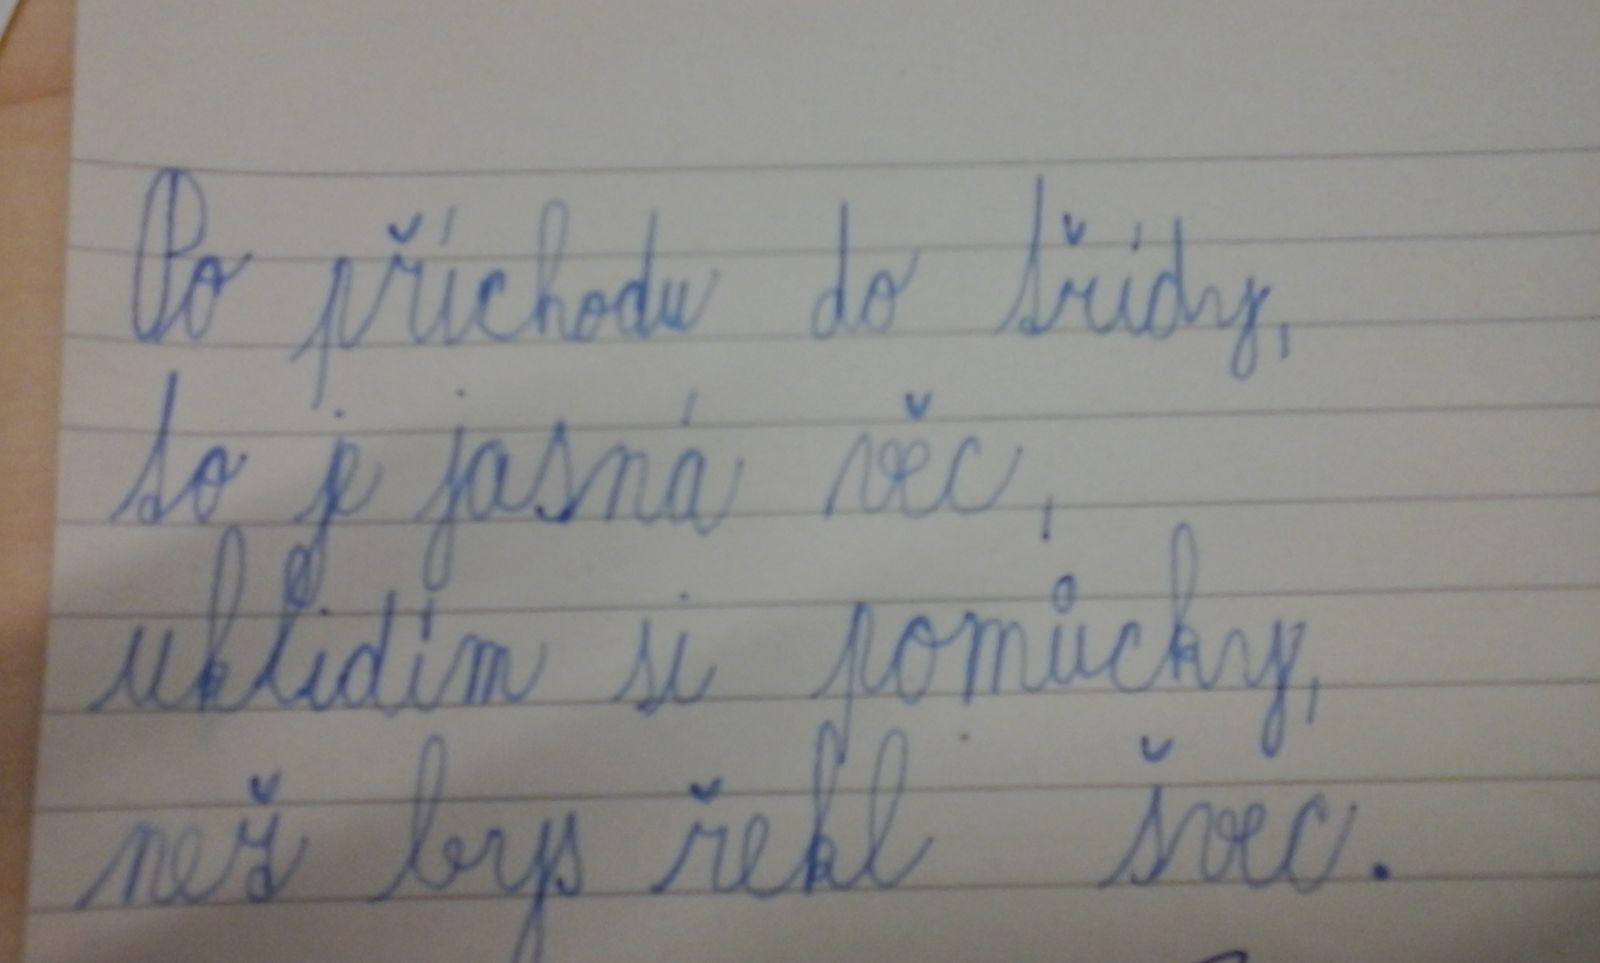 Po příchodu do třídy,
to je jasná věc,
uklidím si pomůcky,
než bys řekl švec.